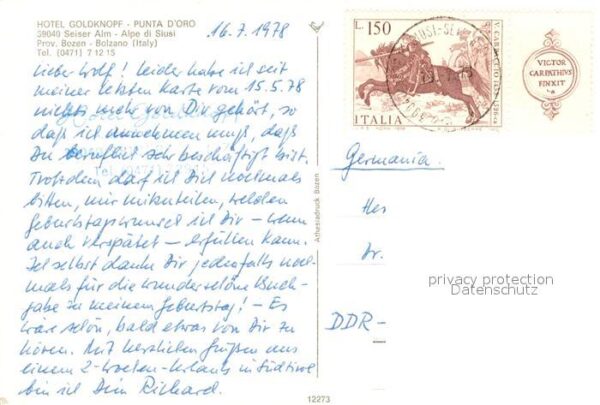 HOTEL GOLDKNOPF - PUNTA D'ORO
39040 Seiser Alm - Alpe di Siusi
Prov. Bozen - Bolzano (Italy)
Tel. (0471) 7 12 15
16.7.1978
Lieber Wolf! Leider habe ich seit
meiner letzten Karte vom 15.5.78
nichts mehr von Dir gehört, so
daß ich annehmen muß, daß
Du beruflich sehr beschäftigt bist.
Trotzdem darf ich Dich nochmals
bitten, mir mitzuteilen, welchen
Geburtstagswunsch ich Dir – wenn
auch verspätet – erfüllen kann.
Ich selbst danke Dir jedenfalls noch-
mals für die wunderschöne Buch-
gabe zu meinem Geburtstag! – Es
wäre schön, bald etwas von Dir zu
hören. Mit herzlichen Grüßen aus
einem 2-Wochen-Urlaub in Südtirol
bin ich Dein Richard.
Athesiadruck Bozen
12273
L. 150
V. CARPACCIO
ITALIA
VICTOR
CARPATHIUS
FINXIT
Germania.
Dr.
DDR-
privacy protection
Datenschutz